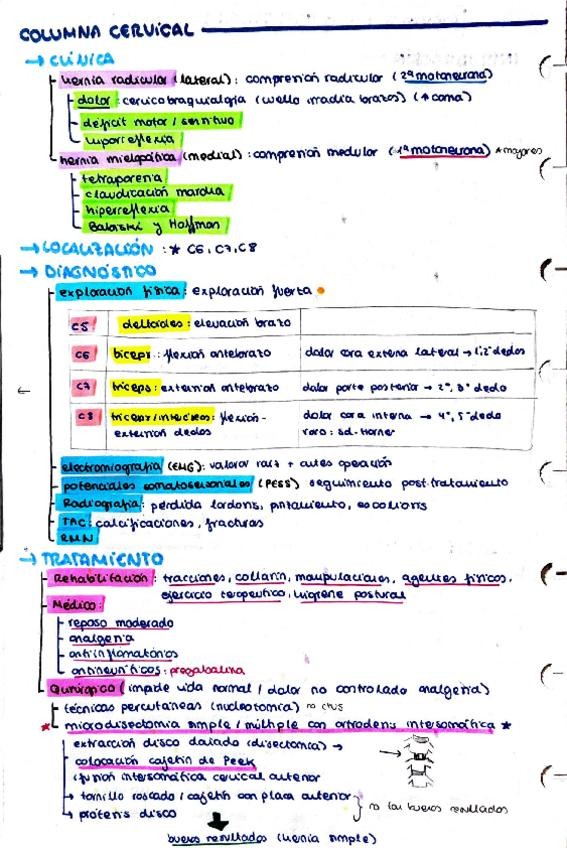 COLUMNA CERVICAL
→ CLÍNICA
hernia radicular (lateral): compresión radicular (2ª motoneurona)
dolor: cervicobraquialgia (cuello irradia brazos) (↑ coma)
déficit motor / sensitivo
hiporreflexia
hernia mielopática (medial): compresión medular (1ª motoneurona) *mayores
tetraparesia
claudicación marcha
hiperreflexia
Babinski y Hoffman
→ LOCALIZACIÓN: * C6, C7, C8
→ DIAGNÓSTICO
exploración física: exploración fuerza
C5 deltoides: elevación brazo
C6 bíceps: flexión antebrazo dolor cara externa lateral → 1,2º dedos
C7 tríceps: extensión antebrazo dolor parte posterior → 2º, 3º dedo
C8 tríceps/interóseos: flexión- dolor cara interna → 4º, 5º dedo
extensión dedos raro: sd. Horner
electromiografía (EMG): valorar raíz + antes operación
potenciales somatosensoriales (PESS) seguimiento post. tratamiento
Radiografía: pérdida lordosis, pinzamiento, escoliosis
TAC: calcificaciones, fracturas
RMN
→ TRATAMIENTO
Rehabilitación: tracciones, collarín, manipulaciones, agentes físicos,
ejercicio terapeutico, higiene postural
Médico:
reposo moderado
analgesia
antiinflamatorios
antineuríticos: pregabalina
Quirúrgico (impide vida normal / dolor no controlado analgesia)
técnicas percutáneas (nucleotomía) no
* microdisectomía simple / múltiple con artrodesis intersomática *
extracción disco dañado (disectomía) →
colocación cajetín de Peek
fusión intersomática cervical anterior
→ tornillo roscado / cajetín con placa anterior
→ prótesis disco
no tan buenos resultados
buenos resultados (hernia simple)